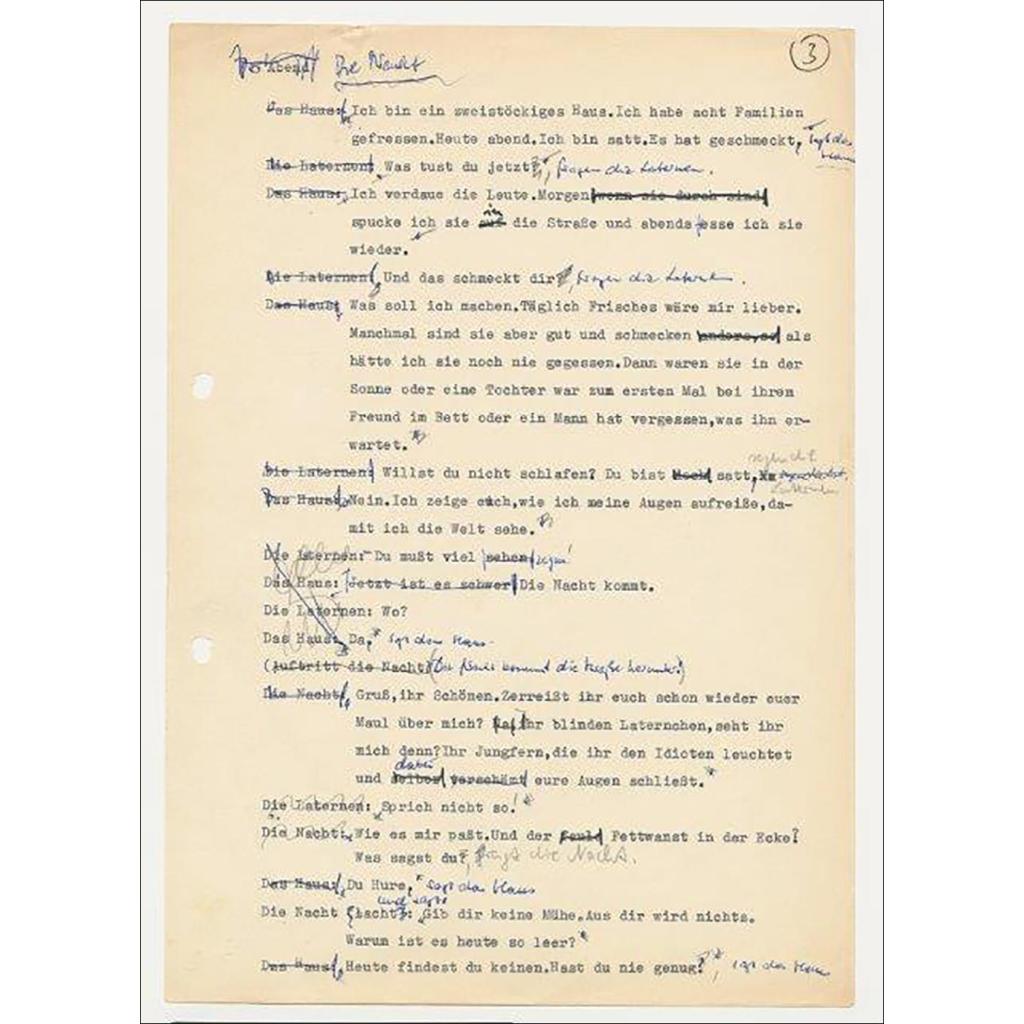 3
Abend Die Nacht
Das Haus: Ich bin ein zweistöckiges Haus.Ich habe acht Familien
gefressen.Heute abend.Ich bin satt.Es hat geschmeckt, sagt das
Haus
Die Laternen: Was tust du jetzt?, fragen die Laternen.
Das Haus: Ich verdaue die Leute.Morgen wenn sie durch sind
in
spucke ich sie auf die Straße und abends esse ich sie
wieder.
Die Laternen: Und das schmeckt dir?, fragen die Laternen.
Das Haus: Was soll ich machen.Täglich Frisches wäre mir lieber.
Manchmal sind sie aber gut und schmecken anders,so als
hätte ich sie noch nie gegessen.Dann waren sie in der
Sonne oder eine Tochter war zum ersten Mal bei ihrem
Freund im Bett oder ein Mann hat vergessen,was ihn er-
wartet.
Die Laternen: Willst du nicht schlafen? Du bist doch satt,
Das Haus: Nein.Ich zeige euch,wie ich meine Augen aufreiße,da-
mit ich die Welt sehe.
Die Laternen: Du mußt viel sehen
Das Haus: Jetzt ist es schwer Die Nacht kommt.
Die Laternen: Wo?
Das Haus: Da, sagt das Haus.
(Auftritt die Nacht) (Die Nacht kommt die Straße herunter.)
Die Nacht: Gruß,ihr Schönen.Zerreißt ihr euch schon wieder euer
Maul über mich? Ihr blinden Laternchen,seht ihr
mich denn?Ihr Jungfern,die ihr den Idioten leuchtet
dabei
und selber verschämt eure Augen schließt.
Die Laternen: Sprich nicht so!
Die Nacht: Wie es mir paßt.Und der faule Fettwanst in der Ecke?
Was sagst du?, fragt die Nacht.
Das Haus: Du Hure, sagt das Haus
und sagt
Die Nacht (lacht): Gib dir keine Mühe.Aus dir wird nichts.
Warum ist es heute so leer?
Das Haus: Heute findest du keinen.Hast du nie genug?, sagt das Haus